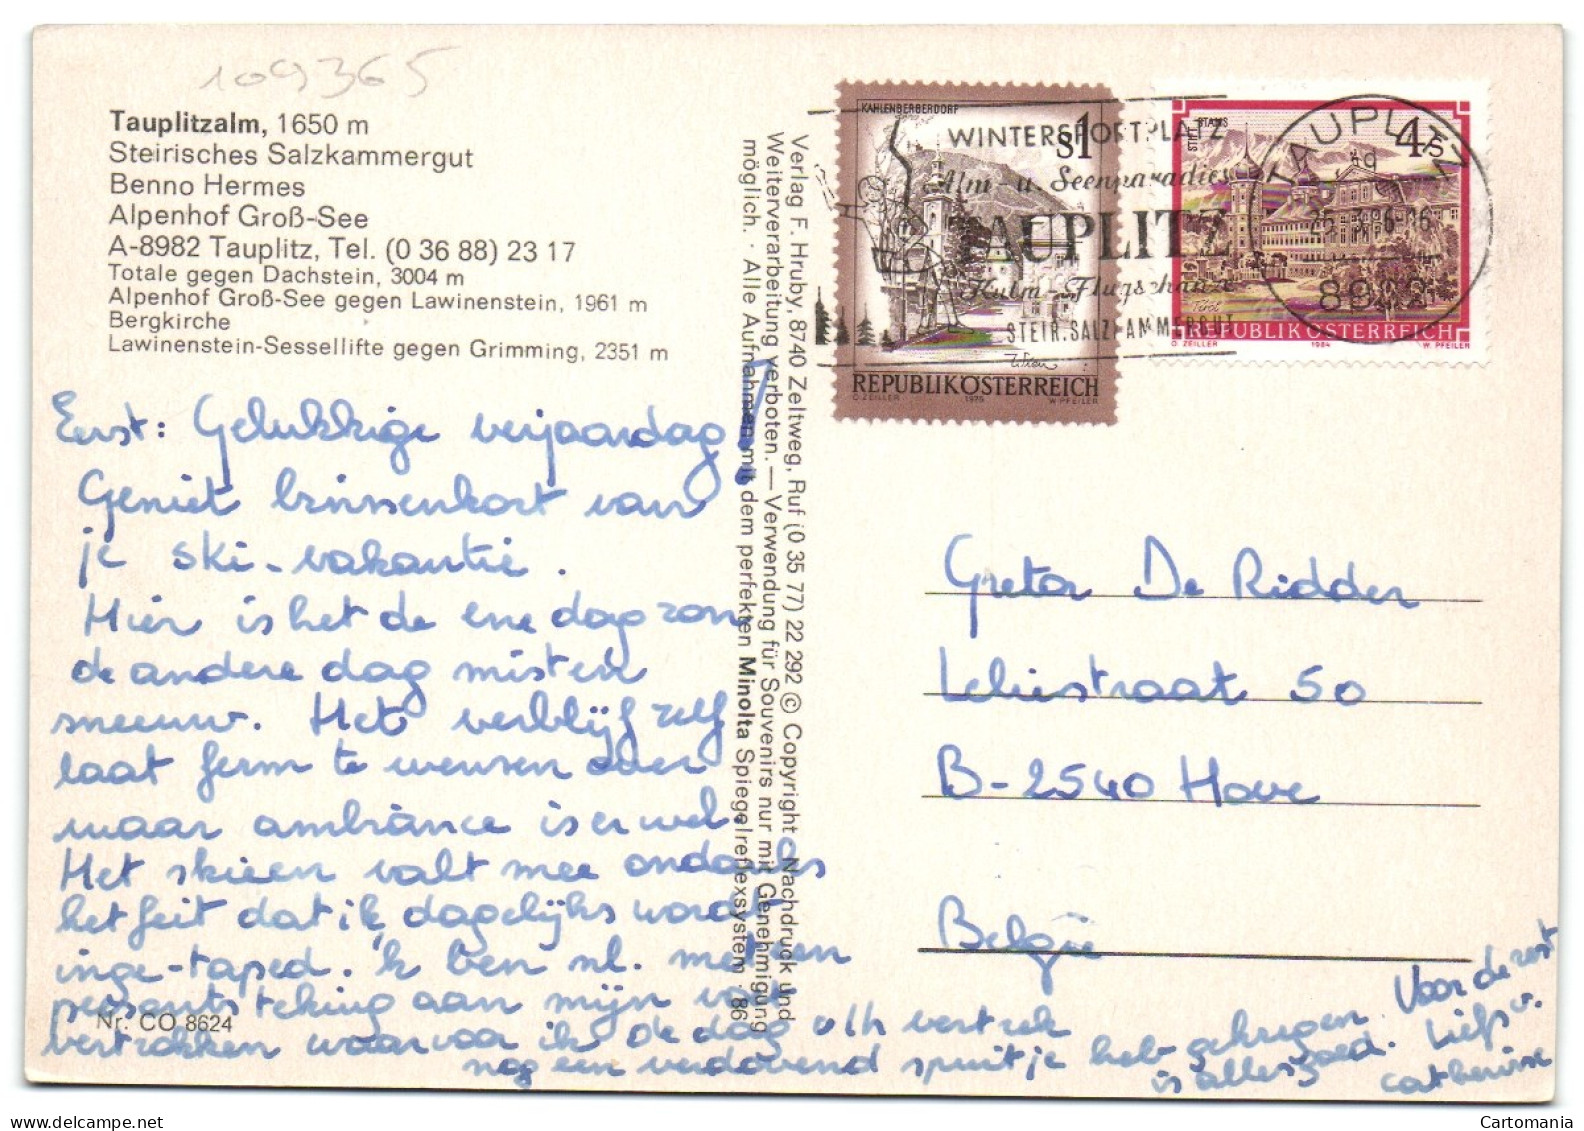 109365
Tauplitzalm, 1650 m
Steirisches Salzkammergut
Benno Hermes
Alpenhof Groß-See
A-8982 Tauplitz, Tel. (0 36 88) 23 17
Totale gegen Dachstein, 3004 m
Alpenhof Groß-See gegen Lawinenstein, 1961 m
Bergkirche
Lawinenstein-Sessellifte gegen Grimming, 2351 m
Eerst: Gelukkige verjaardag!
Geniet binnenkort van
je ski-vakantie.
Hier is het de ene dag zon,
de andere dag mist en
sneeuw. Het verblijf zelf
laat ferm te wensen over
maar ambiance is er wel.
Het skieën valt mee ondanks
het feit dat ik dagelijks wordt
inge-taped. 'k ben nl. met een
aan mijn voet
vertrokken waarvoor ik de dag v/h vertrek
nog een verdovend spuitje heb gekregen. Voor de rest
is alles goed. Liefs v.
Catherine
Nr. CO 8624
Verlag F. Hruby, 8740 Zeltweg, Ruf (0 35 77) 22 292 © Copyright · Nachdruck und
Weiterverarbeitung verboten. — Verwendung für Souvenirs nur mit Genehmigung
möglich. · Alle Aufnahmen mit dem perfekten Minolta Spiegelreflexsystem · 86
KAHLENBERGERDORF
S1
Wien
REPUBLIK ÖSTERREICH
O. ZEILLER 1975 W. PFEILER
WINTERSPORTPLATZ
Alm- u. Seenparadies
TAUPLITZ
Kulm-Flugschanze
STEIR. SALZKAMMERGUT
STIFT STAMS
4S
Tirol
REPUBLIK ÖSTERREICH
O. ZEILLER 1984 W. PFEILER
TAUPLITZ
8982
Greta De Ridder
Leliestraat 50
B-2540 Hove
België
Cartomania